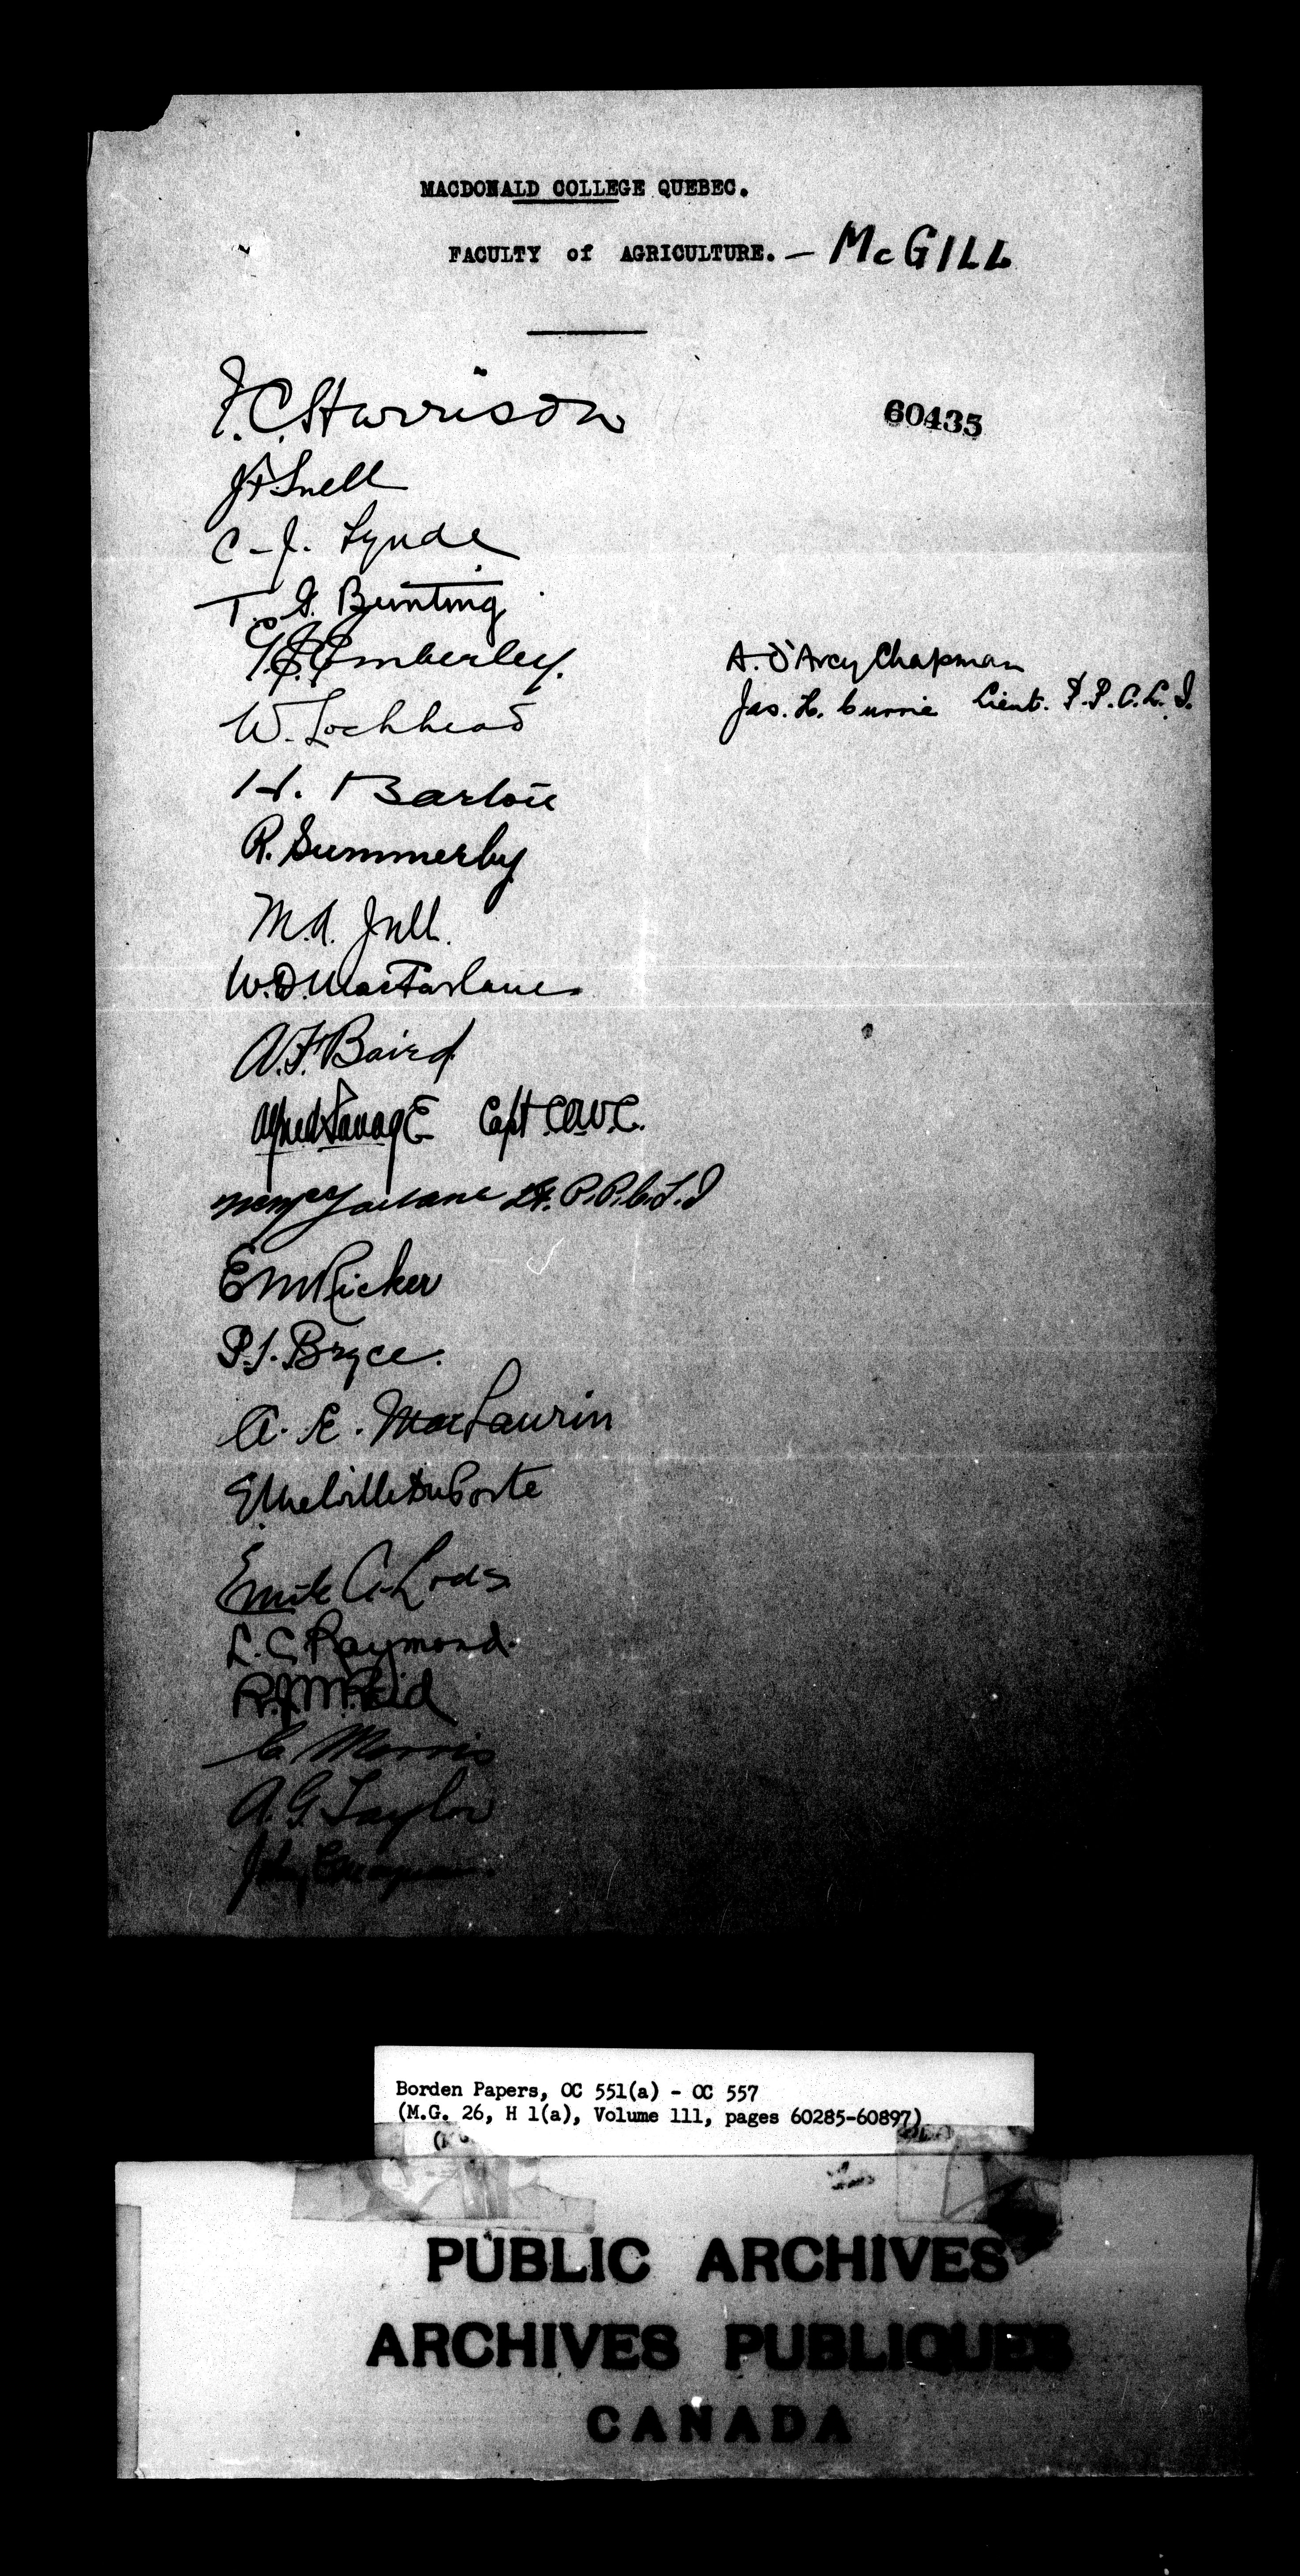 MACDONALD COLLEGE QUEBEC.
FACULTY of AGRICULTURE. — McGILL
F.C. Harrison
60435
J.F. Snell
C. J. Lynde
T. G. Bunting
Emberley.
A. D'Arcy Chapman
Jas. H. Currie Lieut. P.P.C.L.I.
W. Lochhead
H. Barton
R. Summerby
M.A. Jull.
W.D. MacFarlane
A.F. Baird
Alfred Savage Capt. C.A.V.C.
Lt. P.P.C.L.I
E M Ricker
P.I. Bryce.
A. E. MacLaurin
E Melville DuPorte
Emile A. Lods
L. C. Raymond.
R.J.M. Reid
C. Morris
A. G. Taylor
Borden Papers, OC 551(a) - OC 557
(M.G. 26, H 1(a), Volume 111, pages 60285-60897)
PUBLIC ARCHIVES
ARCHIVES PUBLIQUES
CANADA